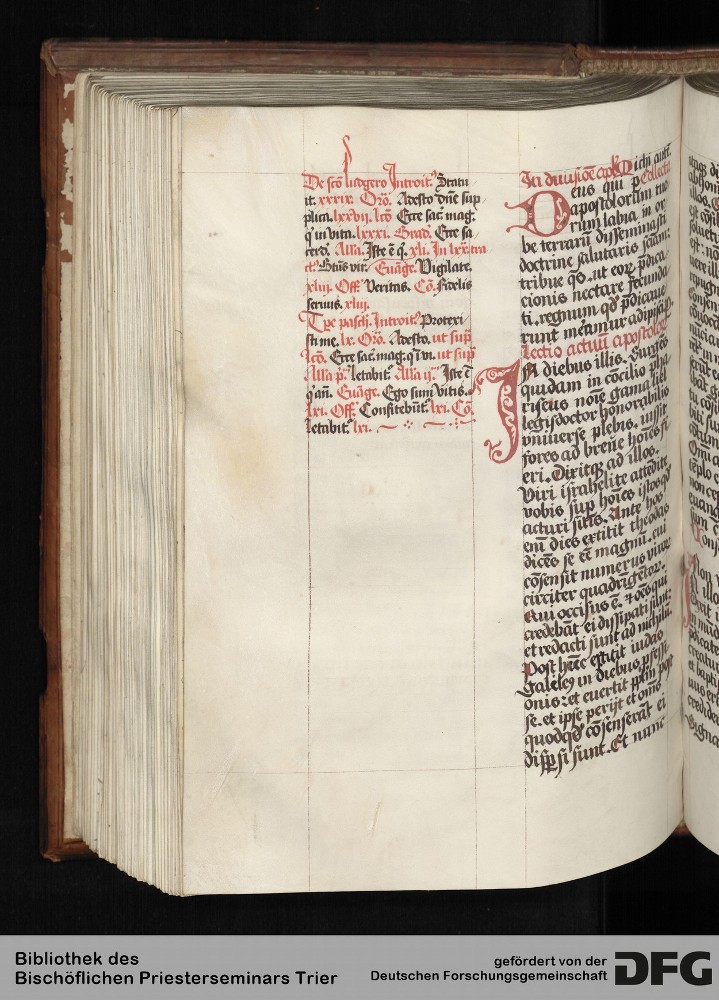 De sco ludgero Introit. Statu
it. xxxix. Oro. Adesto dne sup
plica. lxxvij. lco Ecce sac mag.
q in vita. lxxxi. Grad. Ecce sa
cerd. Alla. Iste e q. xli. In lxx tra
ct. Btus vir. Euage. Vigilate.
xliij. Off Veritas. Co. Fidelis
seruus. xliij.
Tpe pasch. Introit. Protexi
sti me. lx. Oro. Adesto. ut sup
lco. Ecce sac mag. q i vi. ut sup
Alla p. letabit. Alla ij. Iste e
q an. Euage. Ego sum vitis.
lxi. Off. Confitebut. lxi. Co.
letabit. lxi.
In diuisioe aplor Michi aut.
Deus qui p Collecta
apostolorum tuo
rum labia in or
be terraru disseminasti
doctrine salutaris sciam:
tribue qs. ut eor pdica
cionis nectare fecunda
ti. regnum qd pdicaue
runt mereamur adipisci. p.
Lectio actuu apostolor
In diebus illis. Surges
quidam in cocilio pha
riseus noie gamaliel
legisdoctor honorabilis
vniuerse plebis. iussit
fores ad breue hoies fi
eri. Dixitqz ad illos.
Viri israhelite attedite
vobis sup hoies istos qd
acturi sitis. Ante hos
eni dies extitit theodas
dices se ee magnu. cui
cosensit numerus viror
circiter quadrigetor.
Qui occisus e. et oes qui
credebat ei dissipati sunt:
et redacti sunt ad nichilu.
Post hunc extitit iudas
galileus in diebus pfessi
onis: et euertit plm post
se. et ipse perijt et oms
quodqd cosenserat ei
dispsi sunt. Et nunc
Bibliothek des
Bischöflichen Priesterseminars Trier
gefördert von der
Deutschen Forschungsgemeinschaft
DFG